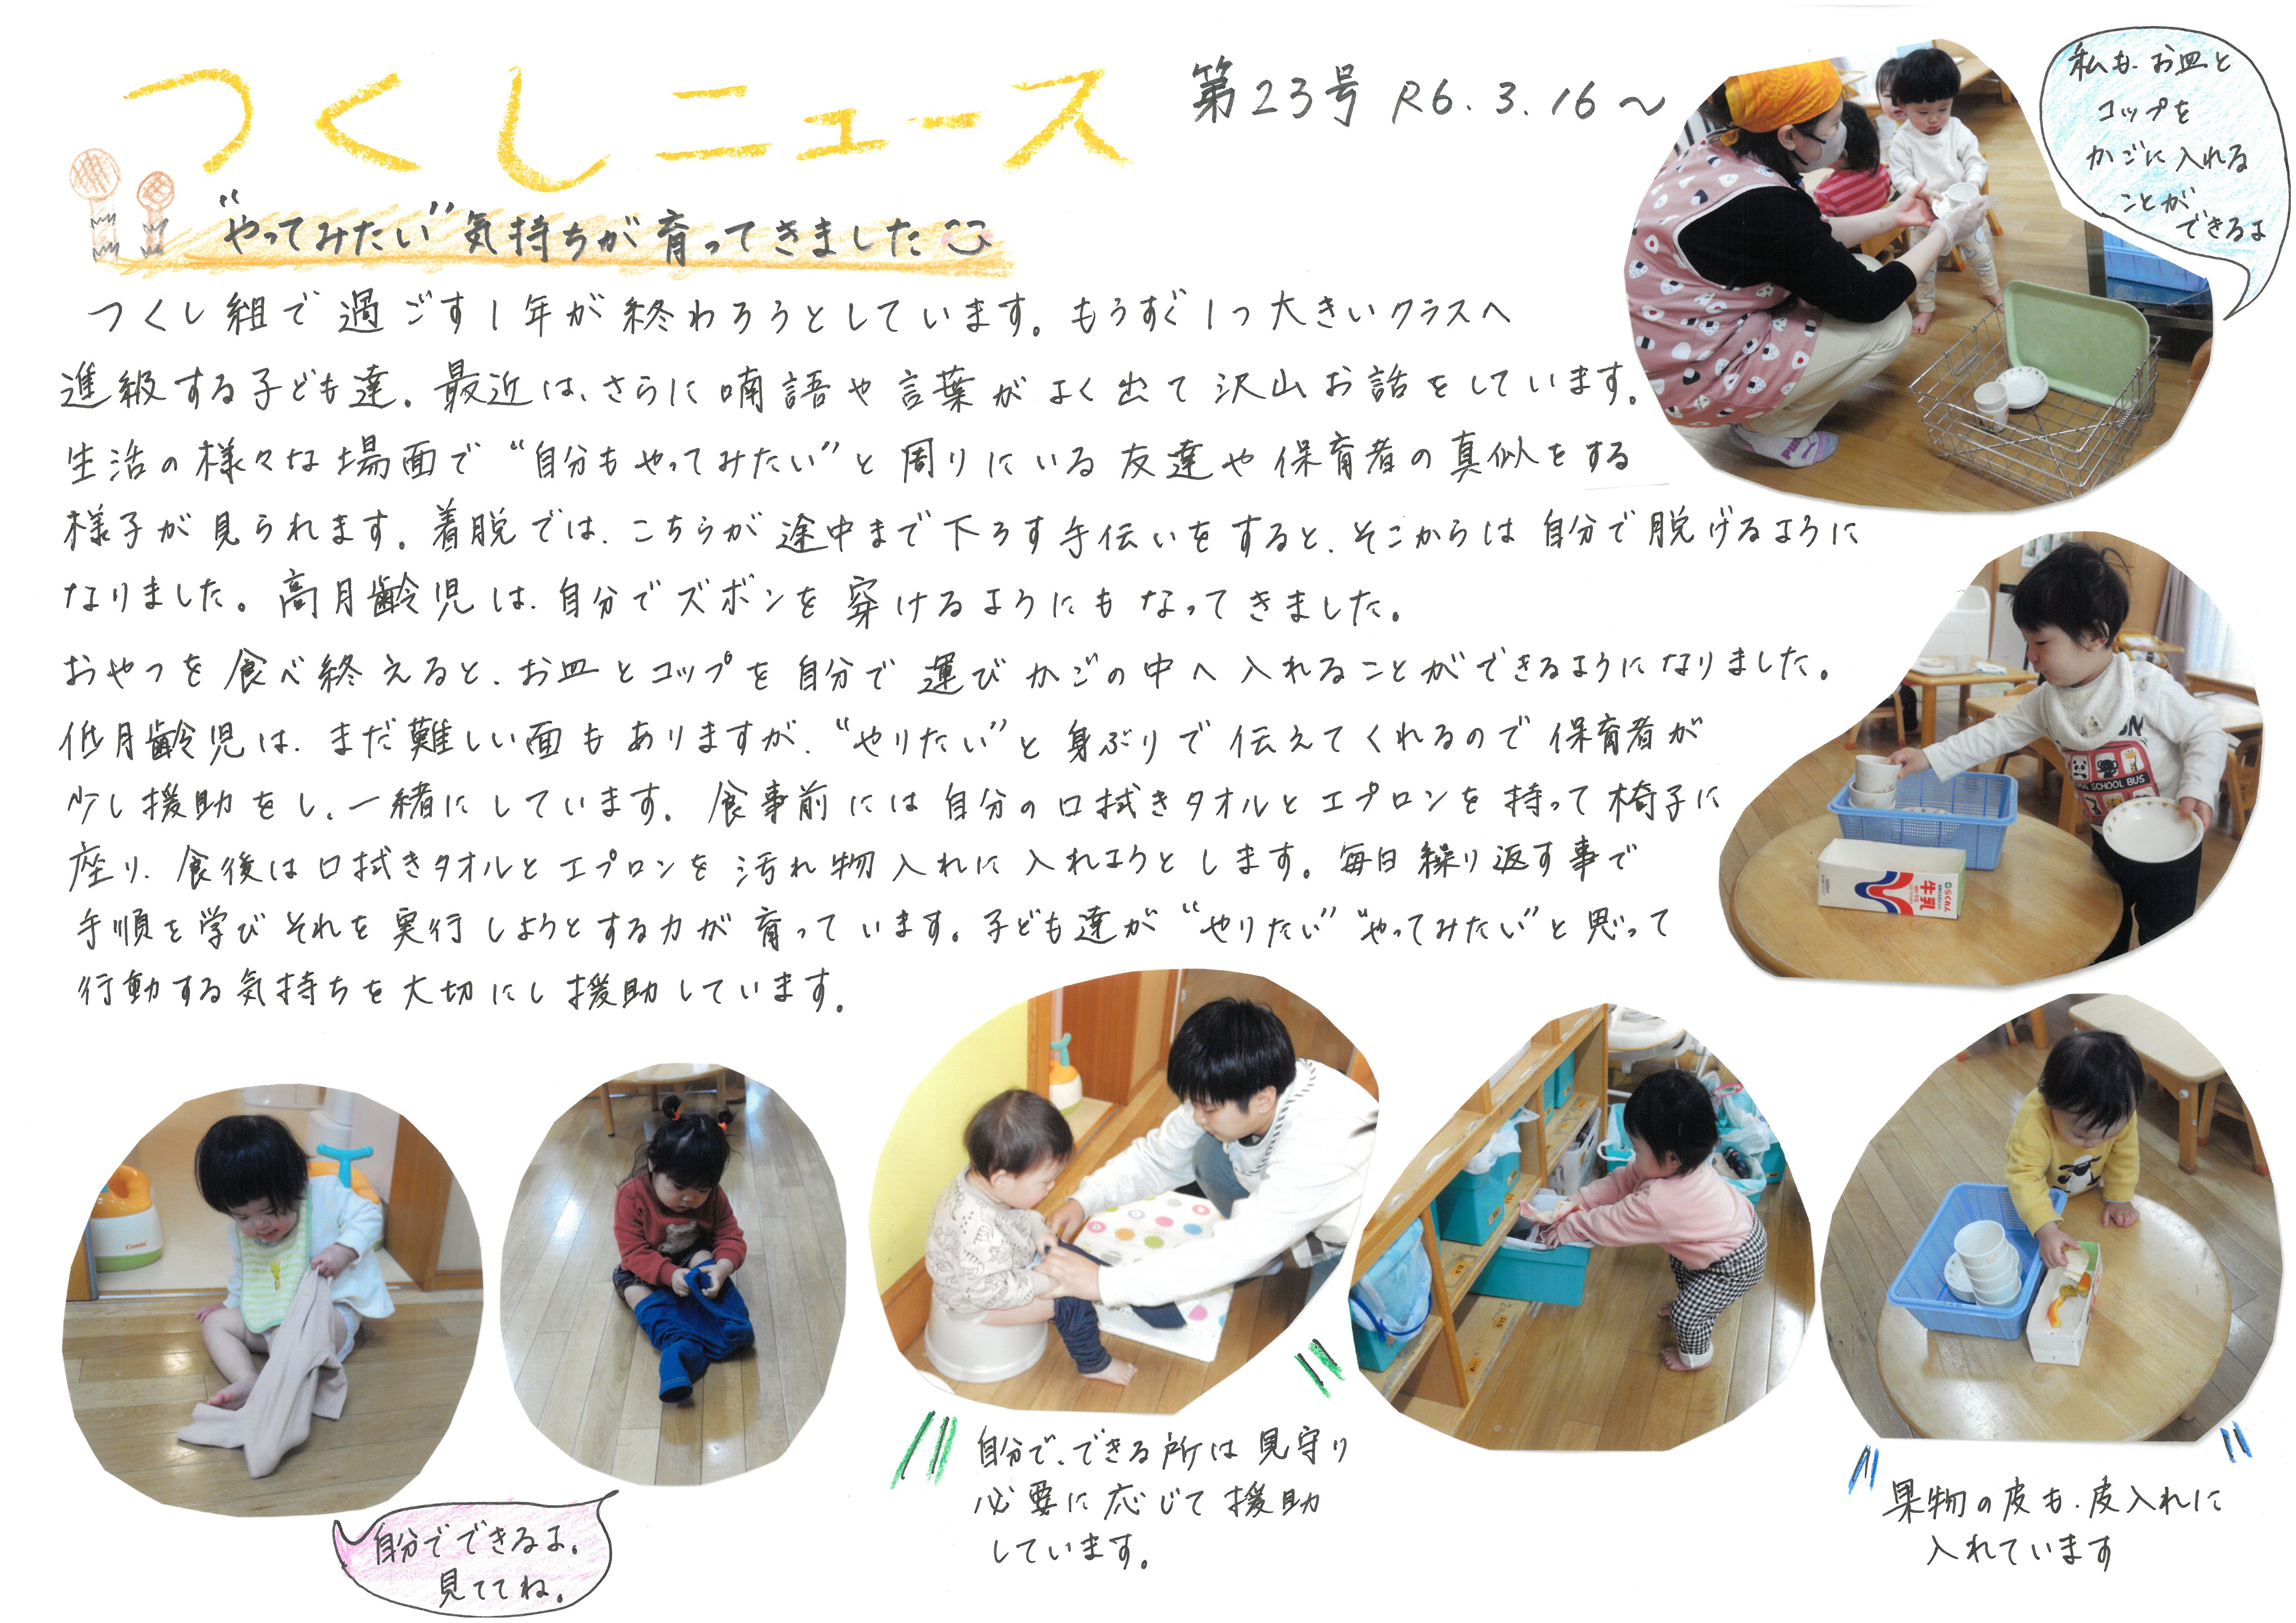 つくしニュース 第23号 R6.3.16～
"やってみたい"気持ちが育ってきました
つくし組で過ごす1年が終わろうとしています。もうすぐ1つ大きいクラスへ
進級する子ども達。最近は、さらに喃語や言葉がよく出て沢山お話をしています。
生活の様々な場面で"自分もやってみたい"と周りにいる友達や保育者の真似をする
様子が見られます。着脱では、こちらが途中まで下ろす手伝いをすると、そこからは自分で脱げるように
なりました。高月齢児は、自分でズボンを穿けるようにもなってきました。
おやつを食べ終えると、お皿とコップを自分で運びかごの中へ入れることができるようになりました。
低月齢児は、まだ難しい面もありますが、"やりたい"と身ぶりで伝えてくれるので保育者が
少し援助をし、一緒にしています。食事前には自分の口拭きタオルとエプロンを持って椅子に
座り、食後は口拭きタオルとエプロンを汚れ物入れに入れようとします。毎日繰り返す事で
手順を学びそれを実行しようとする力が育っています。子ども達が"やりたい""やってみたい"と思って
行動する気持ちを大切にし援助しています。
私も、お皿と
コップを
かごに入れる
ことが
できるよ
SCHOOL BUS
らくれん
牛乳
Combi
自分でできるよ。
見ててね。
自分で、できる所は見守り
必要に応じて援助
しています。
果物の皮も、皮入れに
入れています